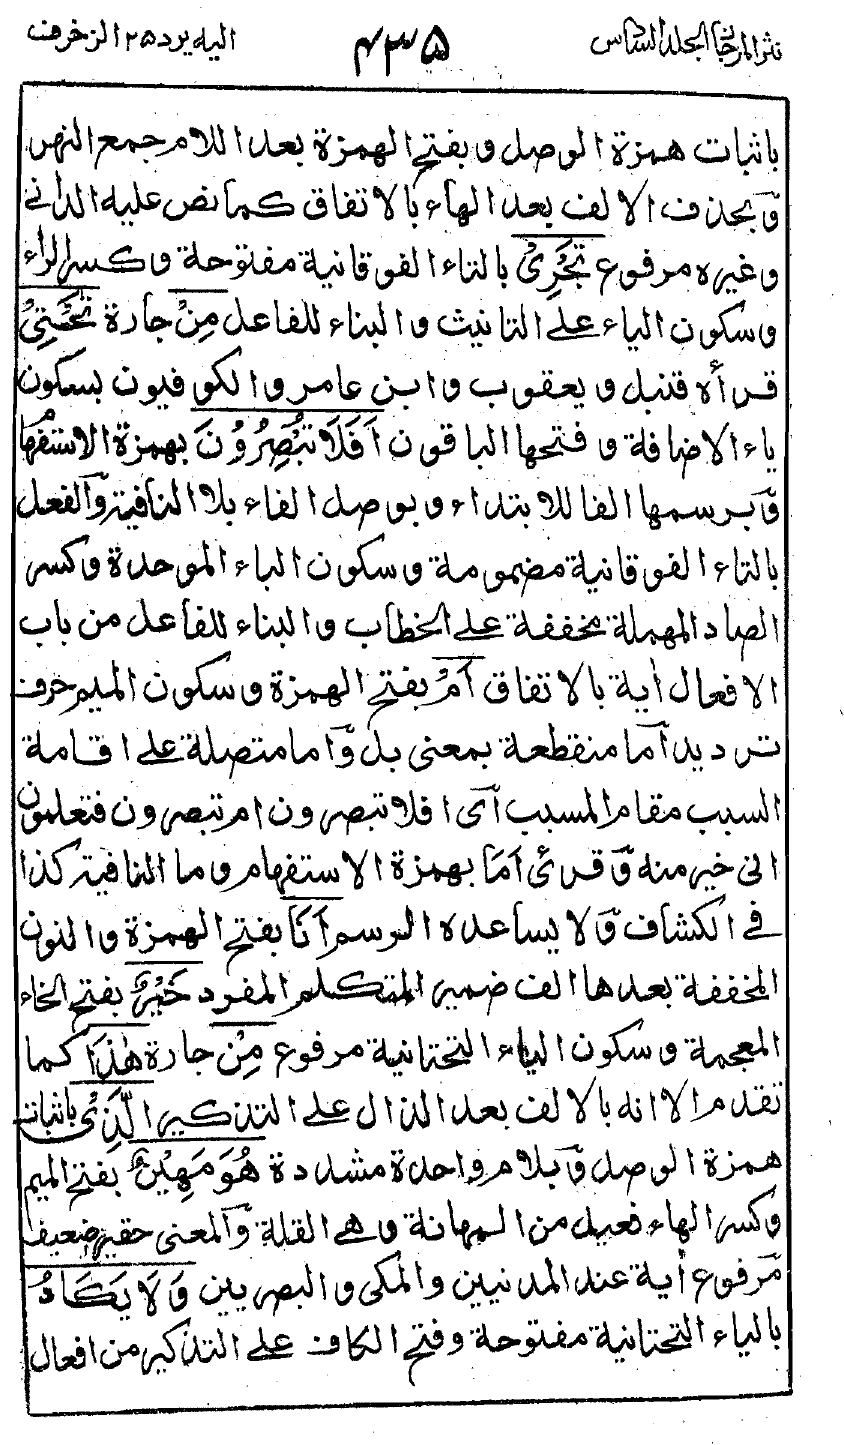 نثر المرجان الجلد السادس ٤٣٥ اليه يرد ٢٥ الزخرف
باثبات همزة الوصل وبفتح الهمزة بعد اللام جمع النهر
وّبحذف الالف بعد الهاء بالاتفاق كما نص عليه الداني
وغيره مرفوع تَجْرِىْ بالتاء الفوقانية مفتوحة وكسر الراء
وسكون الياء على التانيث والبناء للفاعل مِنْ جارة تَحْتِىْ
قرأه قنبل ويعقوب وابن عامر والكوفيون بسكون
ياء الاضافة وفتحها الباقون اَفَلَا تُبْصِرُوْنَ بهمزة الاستفهام
وّبرسمها الفا للابتداء وبوصل الفاء بلا النافية وّالفعل
بالتاء الفوقانية مضمومة وسكون الباء الموحدة وكسر
الصاد المهملة مخففة على الخطاب والبناء للفاعل من باب
الافعال أية بالاتفاق اَمْ بفتح الهمزة وسكون الميم حرف
ترديد اّما منقطعة بمعنى بل وّاما متصلة على اقامة
السبب مقام المسبب اّى افلا تبصرون ام تبصرون فتعلمون
انى خير منه وّقرئ اَمَا بهمزة الاستفهام وما النافية كذا
فى الكشاف وّلا يساعده الرسم اَنَا بفتح الهمزة والنون
المخففة بعدها الف ضمير المتكلم المفرد خَيْرٌ بفتح الخاء
المعجمة وسكون الياء التحتانية مرفوع مِنْ جارة هٰذَا كما
تقدم الا انه بالالف بعد الذال على التذكير الَّذِىْ باثبات
همزة الوصل وّبلام واحدة مشددة هُوَ مَهِيْنٌ بفتح الميم
وكسر الهاء فعيل من المهانة وهى القلة وّالمعنى حقير ضعيف
مّرفوع أية عند المدنيين والمكى والبصريين وَلَا يَكَادُ
بالياء التحتانية مفتوحة وفتح الكاف على التذكير من افعال